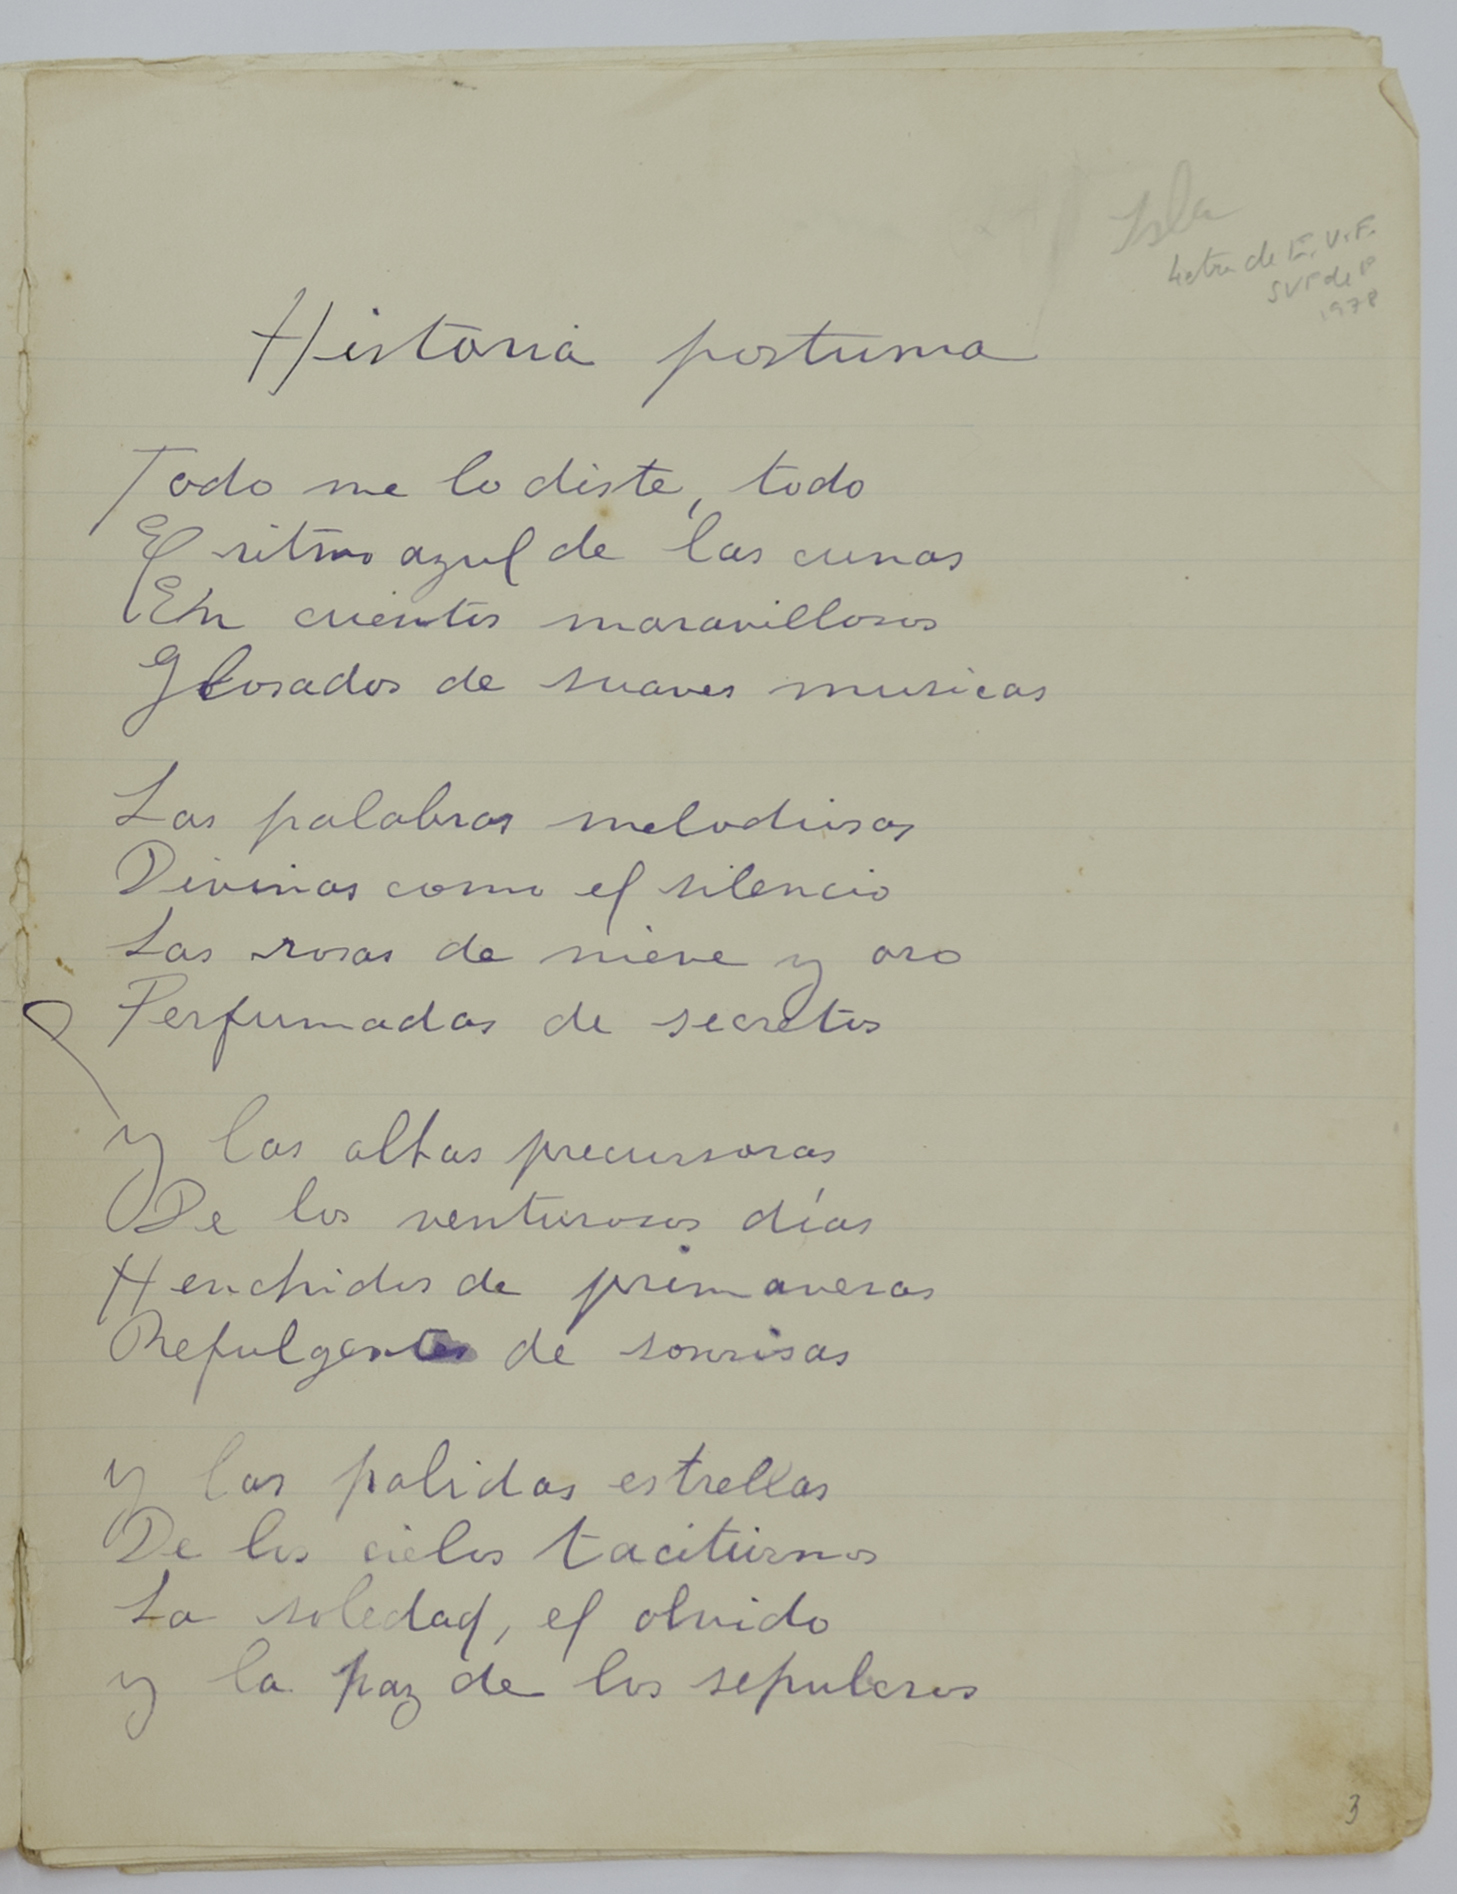 Isla
Letra de E. V. F.
SVF de P
1978
Historia postuma
Todo me lo diste, todo
El ritmo azul de las cunas
En cuentos maravillosos
Glosados de suaves musicas
Las palabras melodiosas
Divinas como el silencio
Las rosas de nieve y oro
Perfumadas de secretos
y las altas precursoras
De los venturosos días
Henchidos de primaveras
Refulgentes de sonrisas
y las palidas estrellas
De los cielos taciturnos
La soledad, el olvido
y la paz de los sepulcros
3